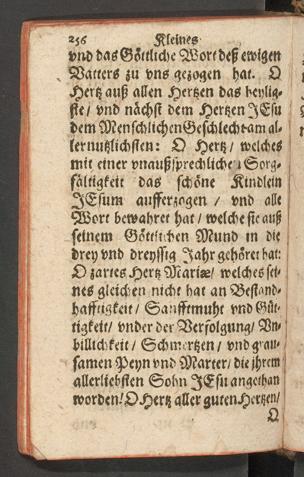 256 Kleines
vnd das Göttliche Wort deß ewigen
Vatters zu vns gezogen hat. O
Hertz auß allen Hertzen das heylig-
ste / vnd nächst dem Hertzen JEsu
dem Menschlichen Geschlecht am al-
lernutzlichsten: O Hertz / welches
mit einer vnaußsprechlichen Sorg-
fältigkeit das schöne Kindlein
JEsum aufferzogen / vnd alle
Wort bewahret hat / welche sie auß
seinem Göttlichen Mund in die
drey vnd dreyssig Jahr gehöret hat:
O zartes Hertz Mariæ / welches sei-
nes gleichen nicht hat an Bestand-
hafftigkeit / Sanfftmuht vnd Güt-
tigkeit / vnder der Verfolgung / Vn-
billichkeit / Schmertzen / vnd grau-
samen Peyn vnd Marter / die jhrem
allerliebsten Sohn JEsu angethan
worden! O Hertz aller guten Hertzen /
O